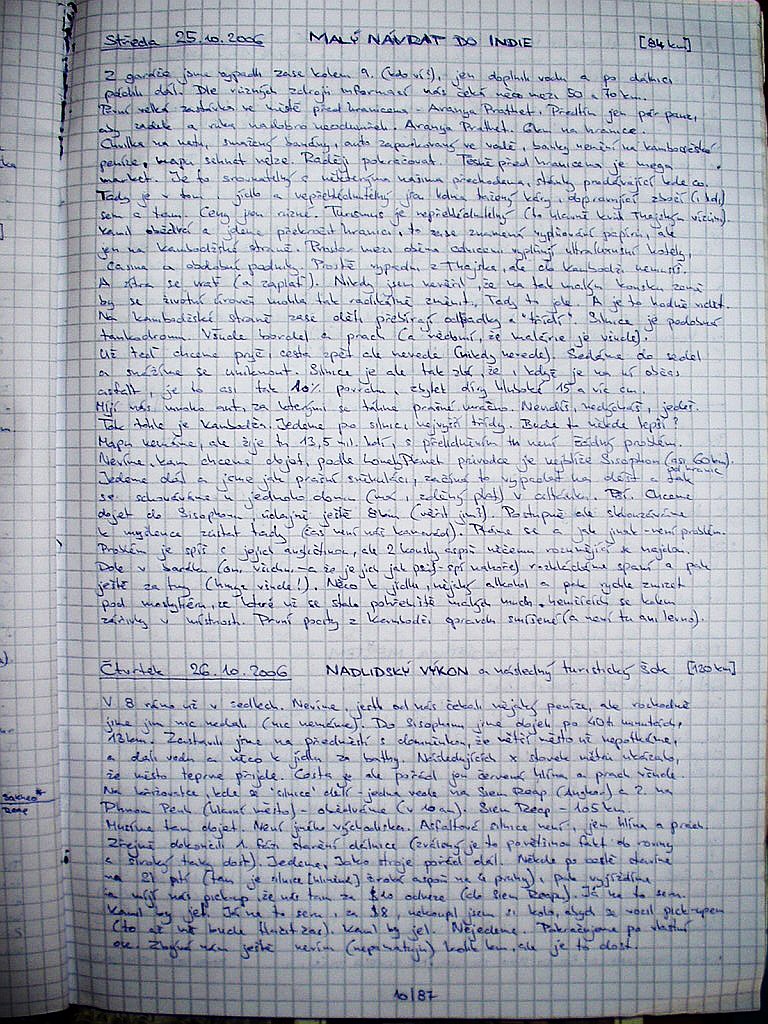 Středa 25.10.2006 MALÝ NÁVRAT DO INDIE [84 km]
Z garáže jsme vypadli zase kolem 9. (kdo ví!), jen doplnit vodu a po dálnici
dál. Dle různých zdrojů informací nás čeká něco mezi 50 a 70 km.
První velká zastávka ve městě před hranicema - Aranya Prathet. Předtím jen pár pauz,
aby zadek a ruky nadobro neodumřeli. Aranya Prathet. 6km na hranice.
Chvilka na netu, smažený banány, auto zaparkovaný ve vodě, banky nemění na kambodžské
peníze, mapu sehnat nelze. Raději pokračovat. Těsně před hranicema je mega
market. Je to srovnatelný s některýma našima přechodama, stánky prodávající kde co.
Tady je v tom jídlo a nepřehlédnutelný jsou káry, dopravující zboží (i lidi)
sem a tam. Ceny jsou různé. Turismus je nepřehlédnutelný (to hlavně kvůli Thajským vízům).
Kamil obětoval a jdeme překročit hranici, to zase znamená vyplňování papírů, ale
jen na kambodžské straně. Prostor mezi oběma celnicemi vyplňují ultraluxusní hotely,
casina a obdobný podniky. Prostě vypadni z Thajska, ale do Kambodži nemusíš.
A zítra se vrať (a zaplať). Nikdy jsem nevěřil, že na tak malým kousku země
by se životní úroveň mohla tak radikálně změnit. Tady to jde. A je to hodně vidět.
Na kambodžské straně zase děti přebírají odpadky a "třídí". Silnice je podobná
tankodromu. Všude bordel a prach (a vědomí, že malárie je všude).
Už teď chceme pryč, cesta zpět ale nevede (nikdy nevede). Sedáme do sedel
a snažíme se uniknout. Silnice je ale tak zlá, že, i když je na ní občas
asfalt, je to asi tak 10% povrchu, zbytek díry hluboké 15 a víc cm.
Míjí nás mnoho aut, za kterými se táhne prašné mračno. Nevidíš, nedýcháš, jedeš.
Tak tohle je Kambodža. Jedeme po silnici nejvyšší třídy. Bude to někde lepší?
Mapu nemáme, ale žije tu 13,5 mil. lidí, s přežitím tu není žádný problém.
Nevíme, kam chceme dojet, podle Lonely Planet průvodce je nejblíže Sisophon (asi 60km).
od hranic
Jedeme dál a jsme jak prašní sněhuláci, začíná to vypadat na déšť a tak
se schováváme u jednoho domu (má zděný plot) v altánku. Prší. Chceme
dojet do Sisophonu, údajně ještě 8km (věřit jim?). Postupně ale sklouzáváme
k myšlence zůstat tady (čas není náš kamarád). Ptáme se a jak jinak - není problém.
Problém je spíš s jejich angličtinou, ale 2 kousky aspoň něčemu rozumějící se najdou.
Dole v baráku (oni všichni - a že je jich jak psů - spí nahoře) rozkládáme spaní a pak
ještě za tmy (hmyz všude!). Něco k jídlu, nějaký alkohol a pak rychle zmizet
pod moskytiéru, ze které už se stalo pohřebiště malých much, hemžících se kolem
zářivky v místnosti. První pocity z Kambodži opravdu smíšené (a není tu ani levno).
Čtvrtek 26.10.2006 NADLIDSKÝ VÝKON a následný turistický šok [120 km]
V 8 ráno už v sedlech. Nevíme, jestli od nás čekali nějaký peníze, ale rozhodně
jsme jim nic nedali (nic nemáme). Do Sisophonu jsme dojeli po 40ti minutách,
13km. Zastavili jsme na předměstí s domněnkou, že větší město už nepotkáme,
a dali vodu a něco k jídlu za bathy. Následujících x stovek metrů ukázalo,
že město teprve přijde. Cesta je ale pořád jen červená hlína a prach všude.
Na křižovatce, kde se 'silnice' dělí - jedna vede na Siem Reap (Angkor) a 2. na
Phnom Penh (hlavní město) - obědváme (v 10 am). Siem Reap - 105 km.
Musíme tam dojet. Není jiného východiska. Asfaltová silnice není, jen hlína a prach.
Zřejmě dokončili 1. fázi stavění dálnice (zvalený je to povětšinou fakt do roviny
a široký taky dost). Jedeme. Jako stroje pořád dál. Někde po cestě otevíráme
na 21 pití (tam je silnice [hliněná] široká aspoň na 4 pruhy), pak vyjíždíme
a míjí nás pickup, že nás tam za $10 odveze (do Siem Reap). Já ne to sem.
Kamil by jel. Já ne to sem, za $8, nekoupil jsem si kolo, abych se vozil pick-upem
(to až mě bude tlačit čas). Kamil by jel. Nejedeme. Pokračujeme po vlastní
ose. Zbývá nám ještě nevím (nepamatuju) kolik km, ale je to dost.
10/87